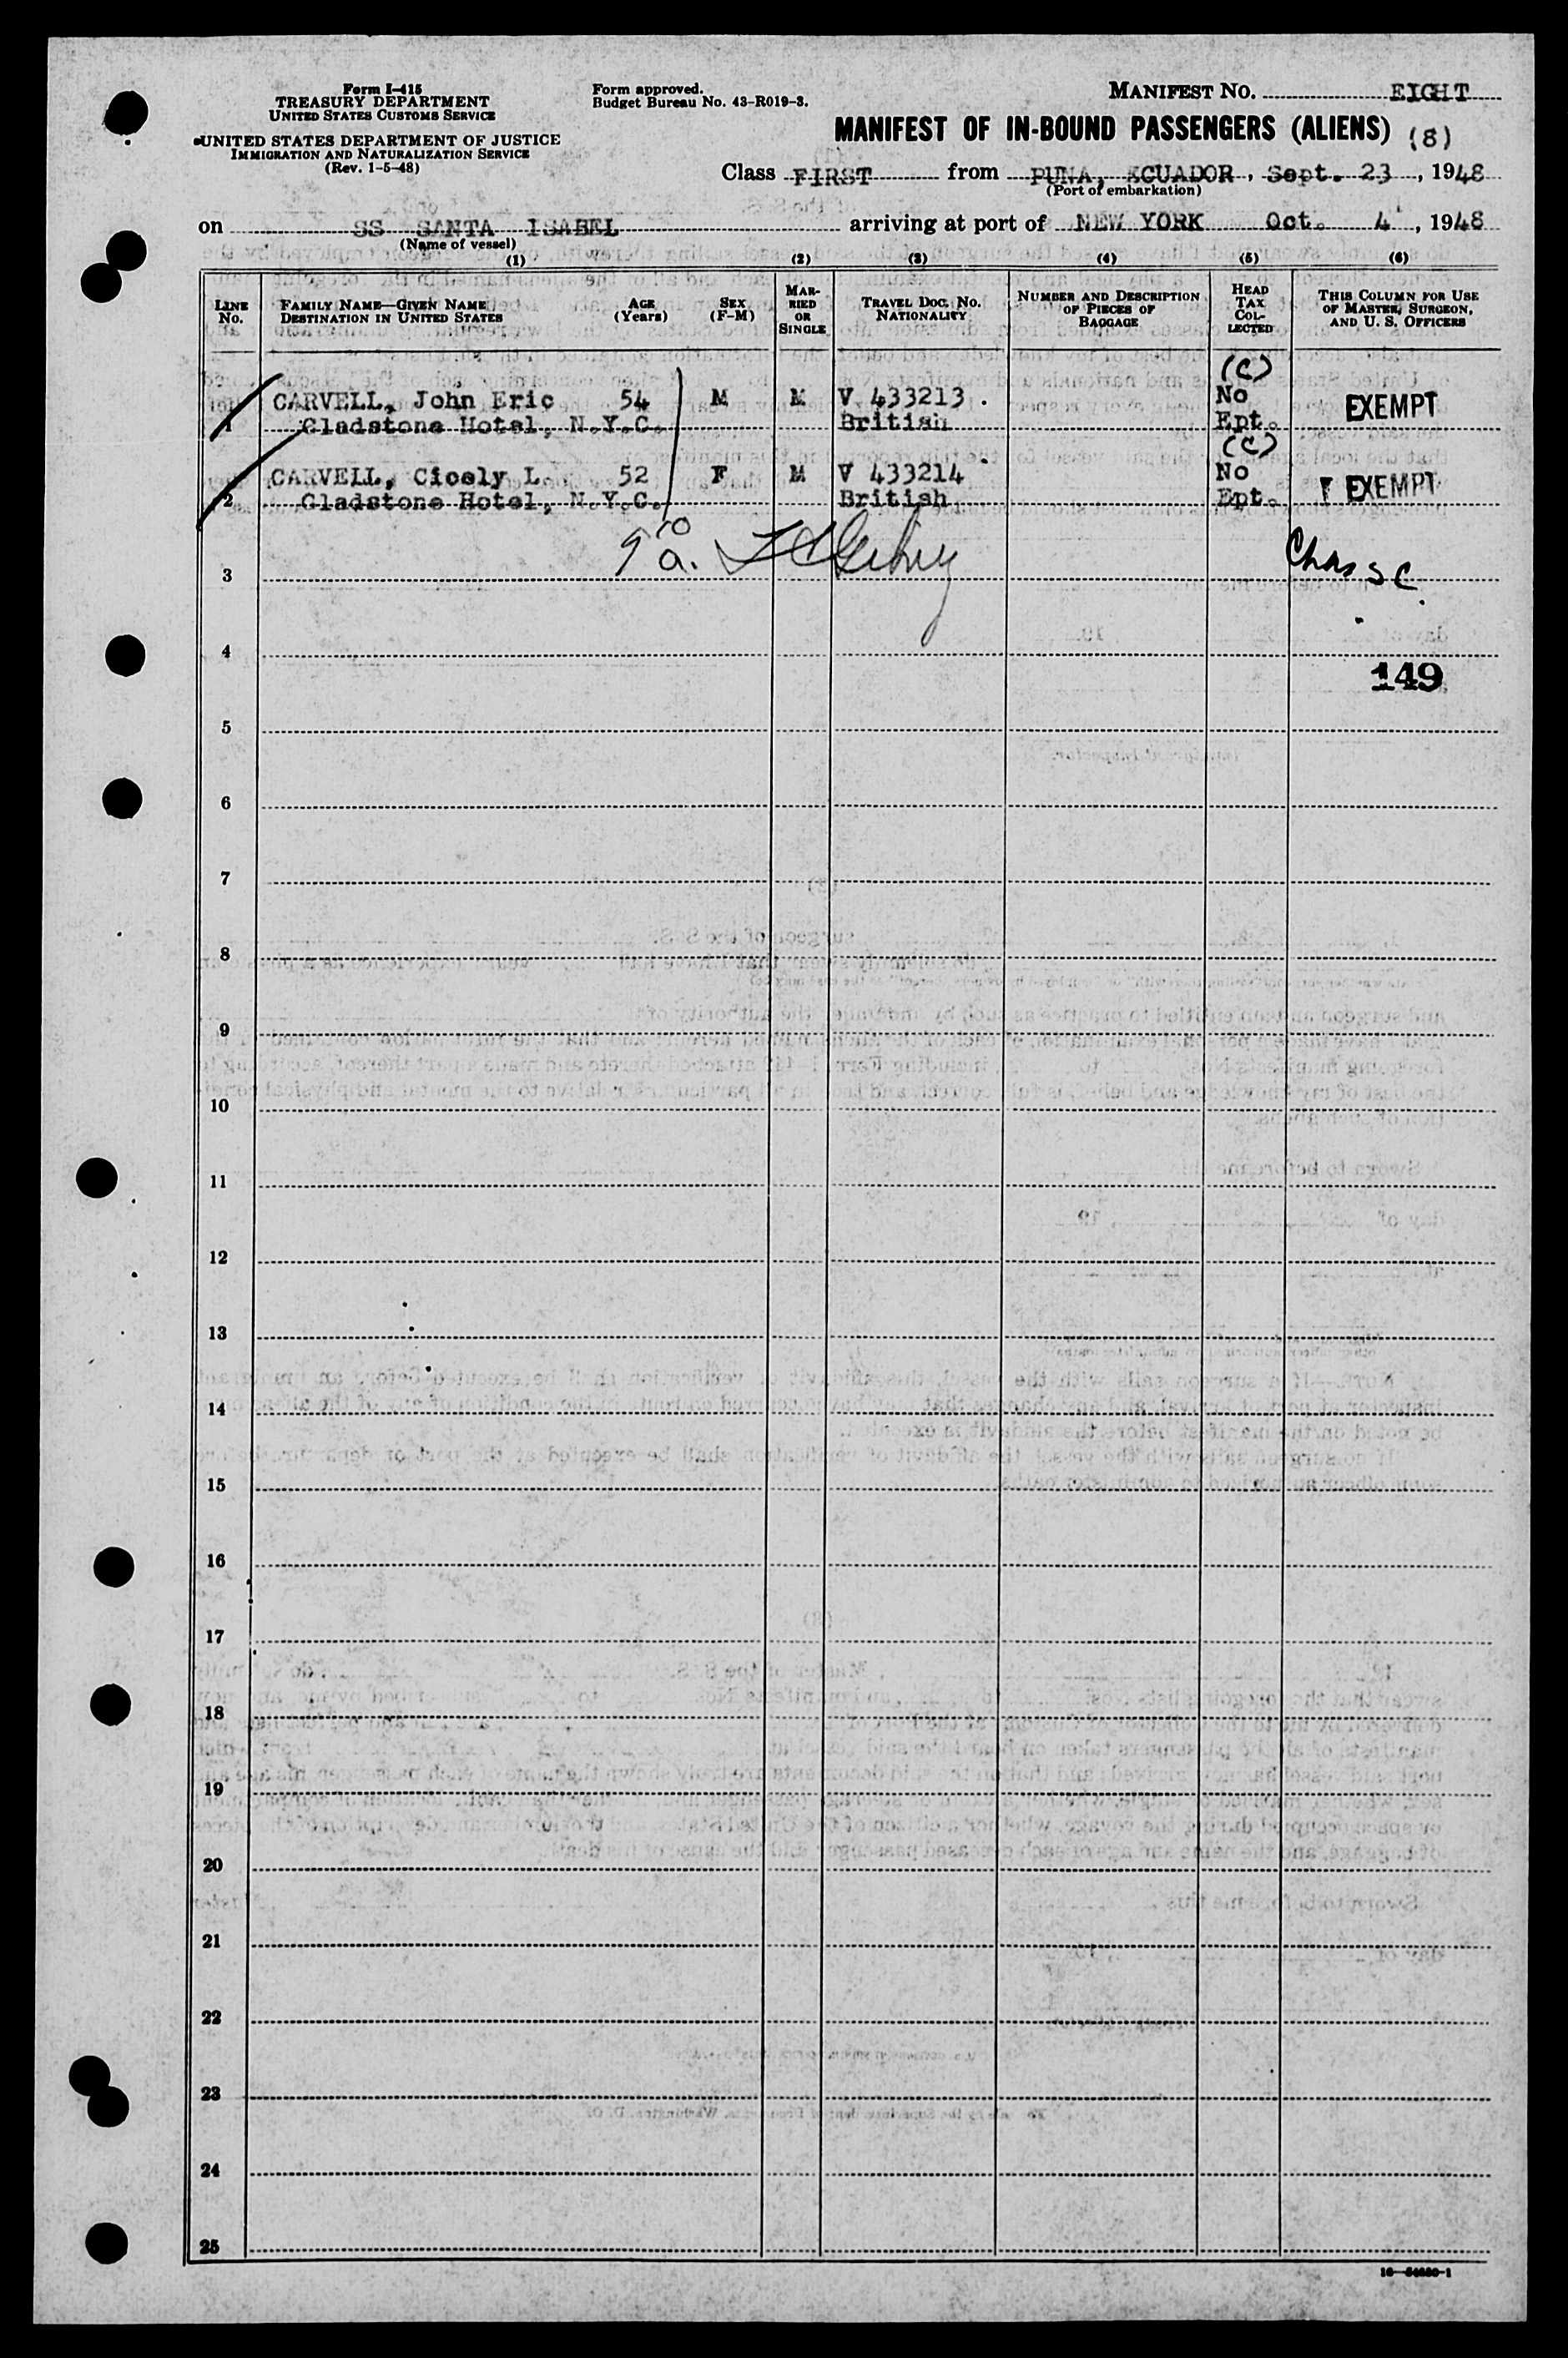 Form I-415
TREASURY DEPARTMENT
UNITED STATES CUSTOMS SERVICE
UNITED STATES DEPARTMENT OF JUSTICE
IMMIGRATION AND NATURALIZATION SERVICE
(Rev. 1-5-48)
Form approved.
Budget Bureau No. 43-R019-3.
MANIFEST NO. EIGHT
MANIFEST OF IN-BOUND PASSENGERS (ALIENS) (8)
Class FIRST from PUNA, ECUADOR, Sept. 23, 1948
(Port of embarkation)
on SS SANTA ISABEL arriving at port of NEW YORK Oct. 4, 1948
(Name of vessel)
(1) (2) (3) (4) (5) (6)
LINE No. FAMILY NAME—GIVEN NAME DESTINATION IN UNITED STATES AGE (Years) SEX (F-M) MARRIED OR SINGLE TRAVEL DOC. NO. NATIONALITY NUMBER AND DESCRIPTION OF PIECES OF BAGGAGE HEAD TAX COLLECTED THIS COLUMN FOR USE OF MASTER, SURGEON, AND U. S. OFFICERS
(C)
CARVELL, John Eric 54 M M V 433213 . No EXEMPT
1 Gladstone Hotel, N.Y.C. British Ept.
(C)
CARVELL, Cicely L. 52 F M V 433214 No EXEMPT
2 Gladstone Hotel, N.Y.C. British Ept.
3
4
149
5
6
7
8
9
10
11
12
13
14
15
16
17
18
19
20
21
22
23
24
25